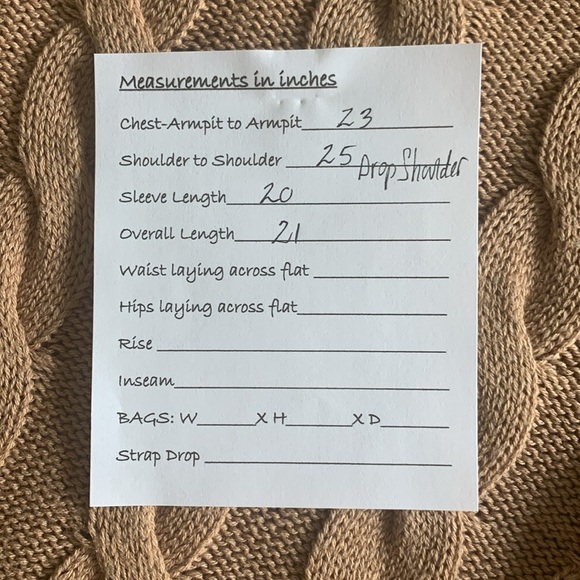 Measurements in inches
Chest-Armpit to Armpit 23
Shoulder to Shoulder 25 Drop Shoulder
Sleeve Length 20
Overall Length 21
Waist laying across flat
Hips laying across flat
Rise
Inseam
BAGS: W______X H______X D______
Strap Drop